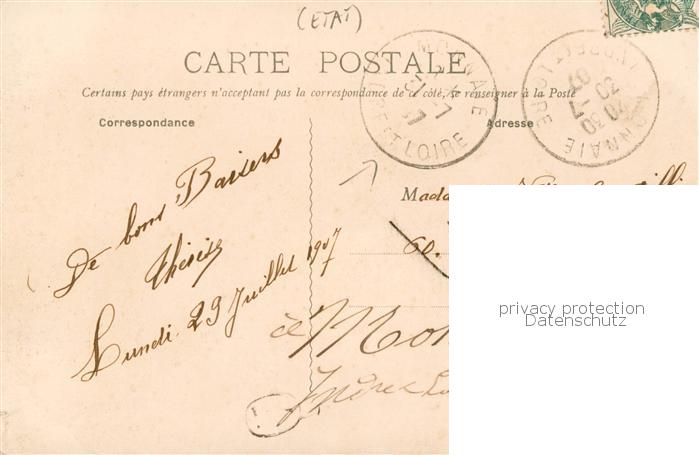 (ETAT)
CARTE POSTALE
Certains pays étrangers n'acceptant pas la correspondance de ce côté, se renseigner à la Poste
Correspondance
Adresse
MONNAIE
ET LOIRE
MONNAIE
INDRE ET LOIRE
20 30
20 -7
07
De bons Baisers
Thérèse
Lundi. 29 Juillet 1907
Mada
60.
à Mon
Indre
privacy protection
Datenschutz